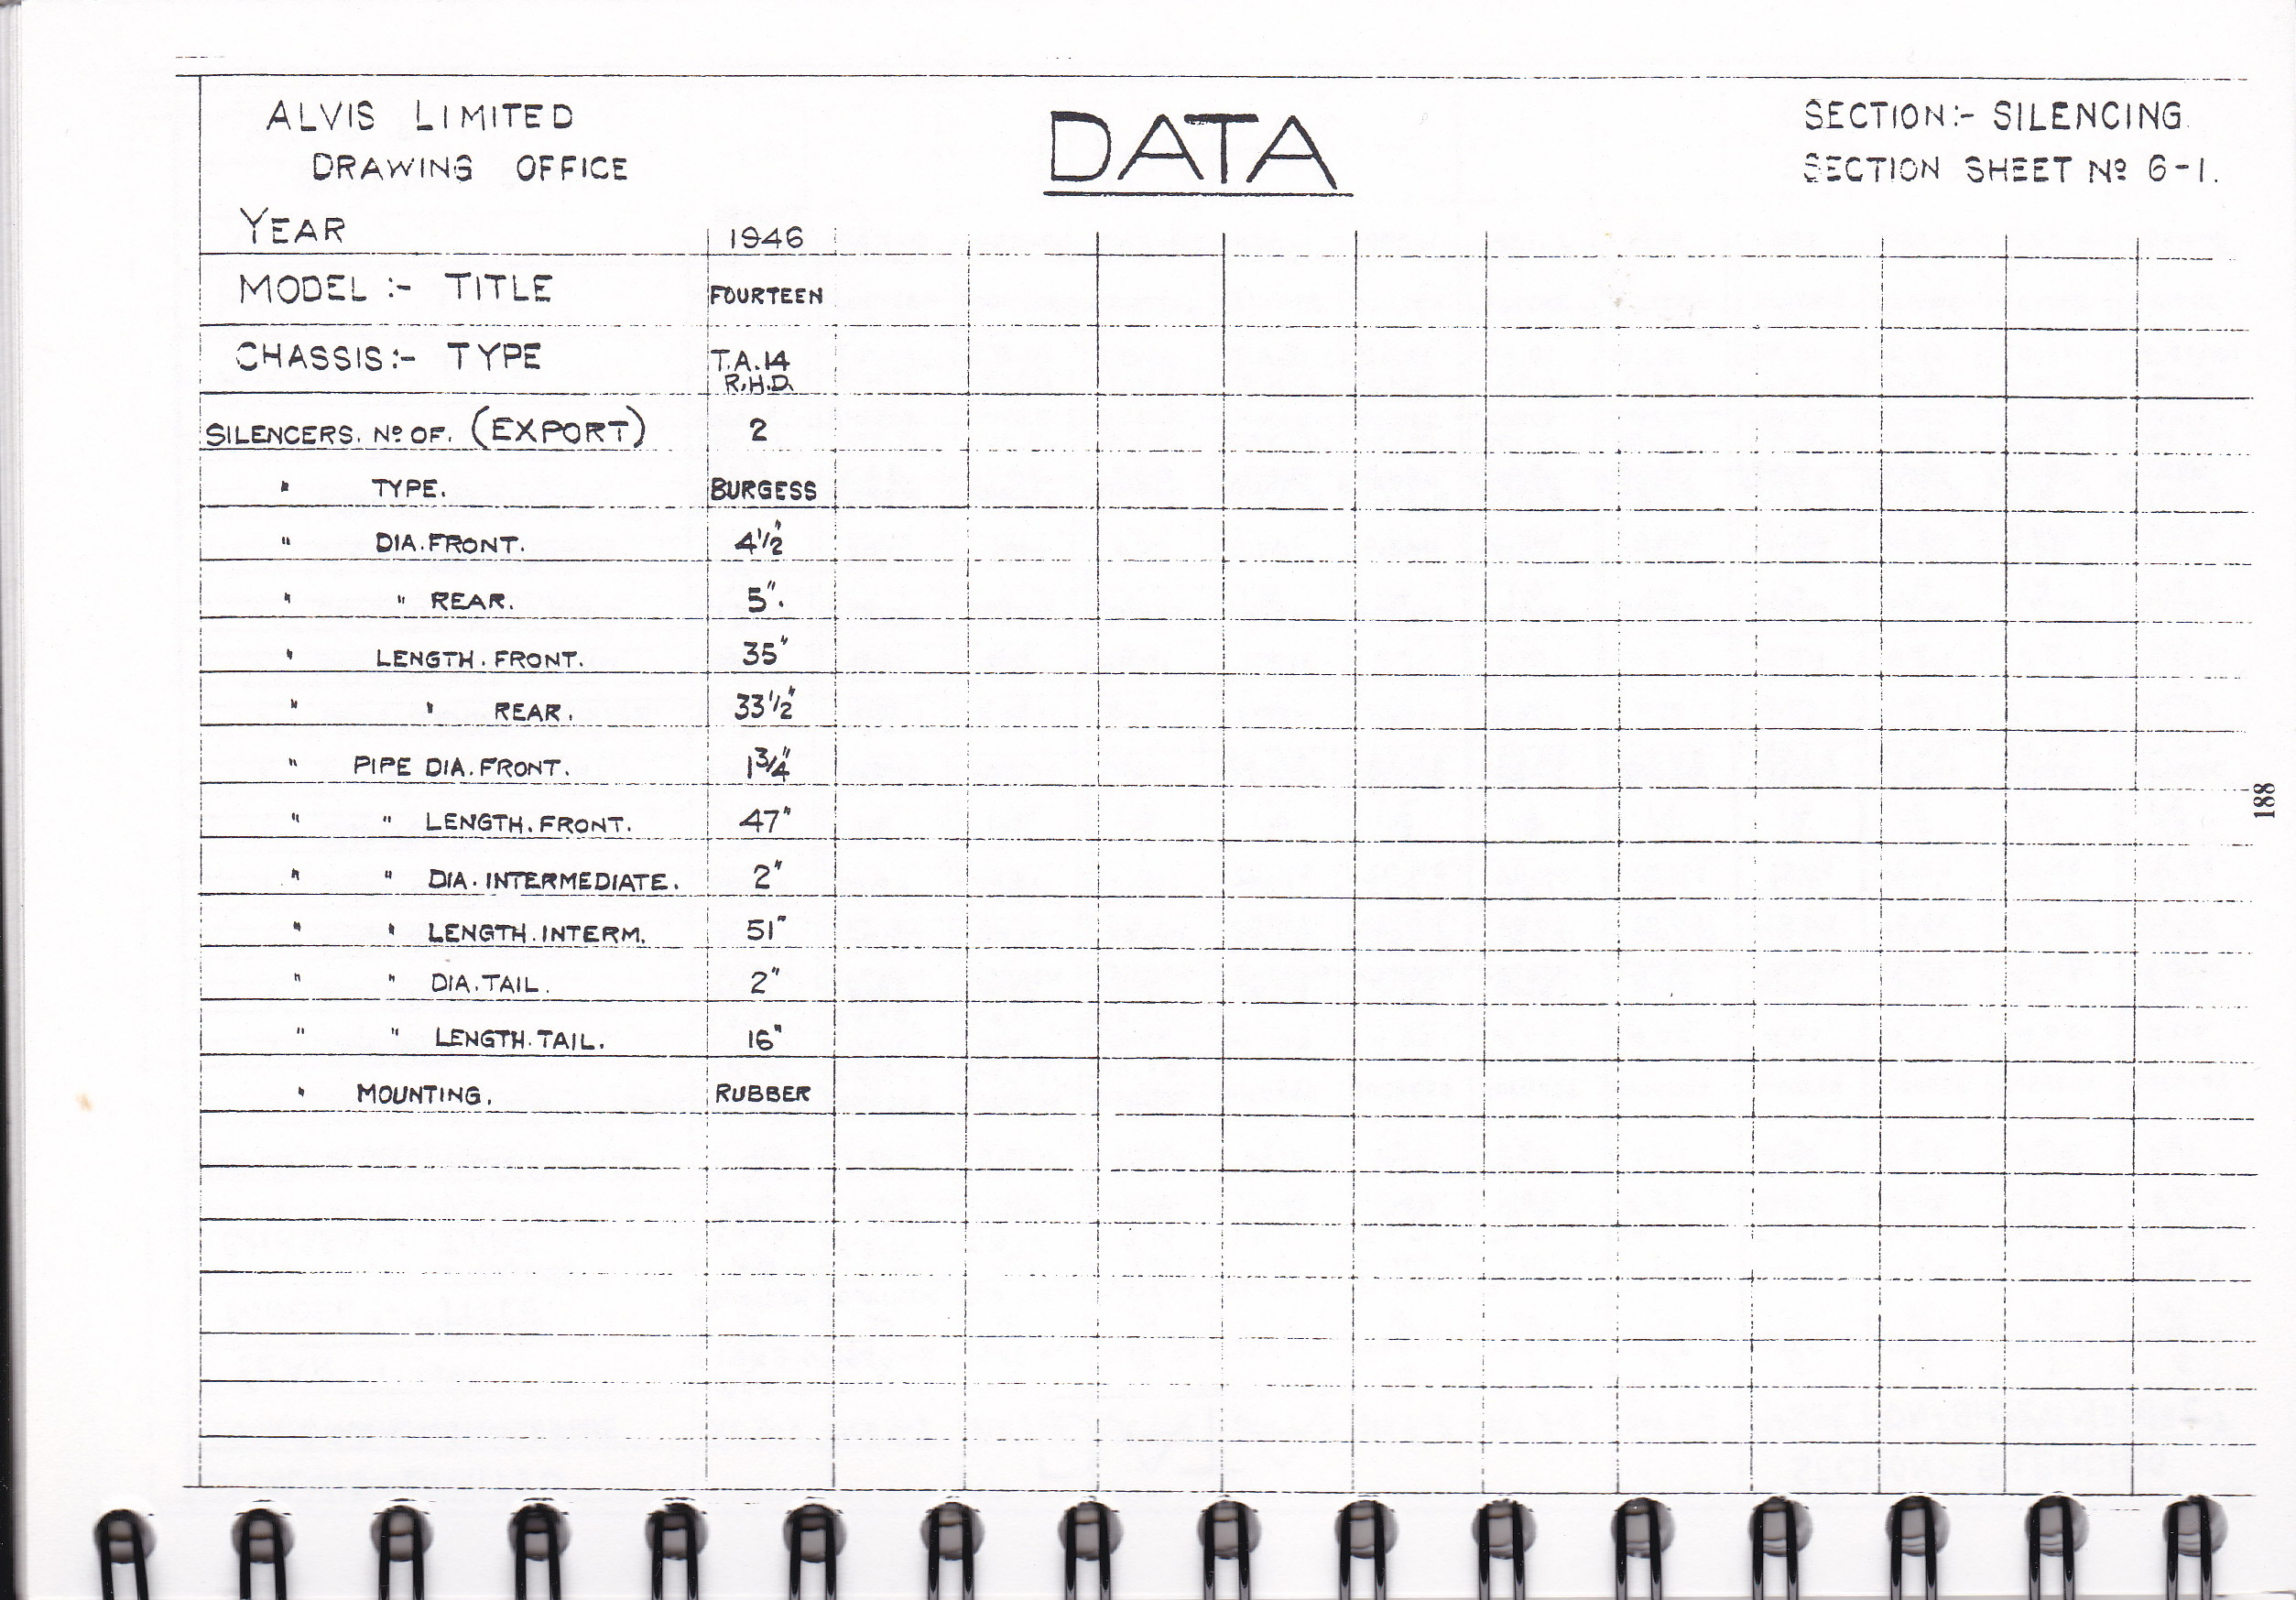 ALVIS LIMITED
DRAWING OFFICE
DATA
SECTION:- SILENCING.
SECTION SHEET Nº 6-1.
YEAR 1946
MODEL :- TITLE FOURTEEN
CHASSIS:- TYPE T.A.14
R.H.D.
SILENCERS. Nº OF. (EXPORT) 2
" TYPE. BURGESS
" DIA.FRONT. 4½"
" " REAR. 5".
" LENGTH.FRONT. 35"
" " REAR. 33½"
" PIPE DIA.FRONT. 1¾"
" " LENGTH.FRONT. 47"
" " DIA.INTERMEDIATE. 2"
" " LENGTH.INTERM. 51"
" " DIA.TAIL. 2"
" " LENGTH.TAIL. 16"
" MOUNTING. RUBBER
188